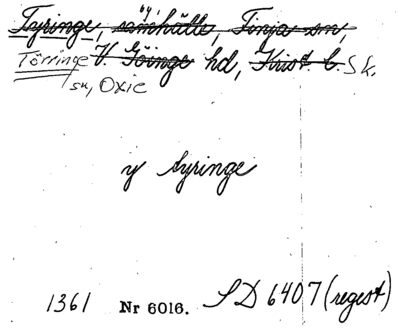 Tyringe, samhälle, Finja sn,
Törringe V. Göinge hd, Krist. l. Sk.
sn, Oxie
y tyringe
1361 Nr 6016. SD 6407 (regest)